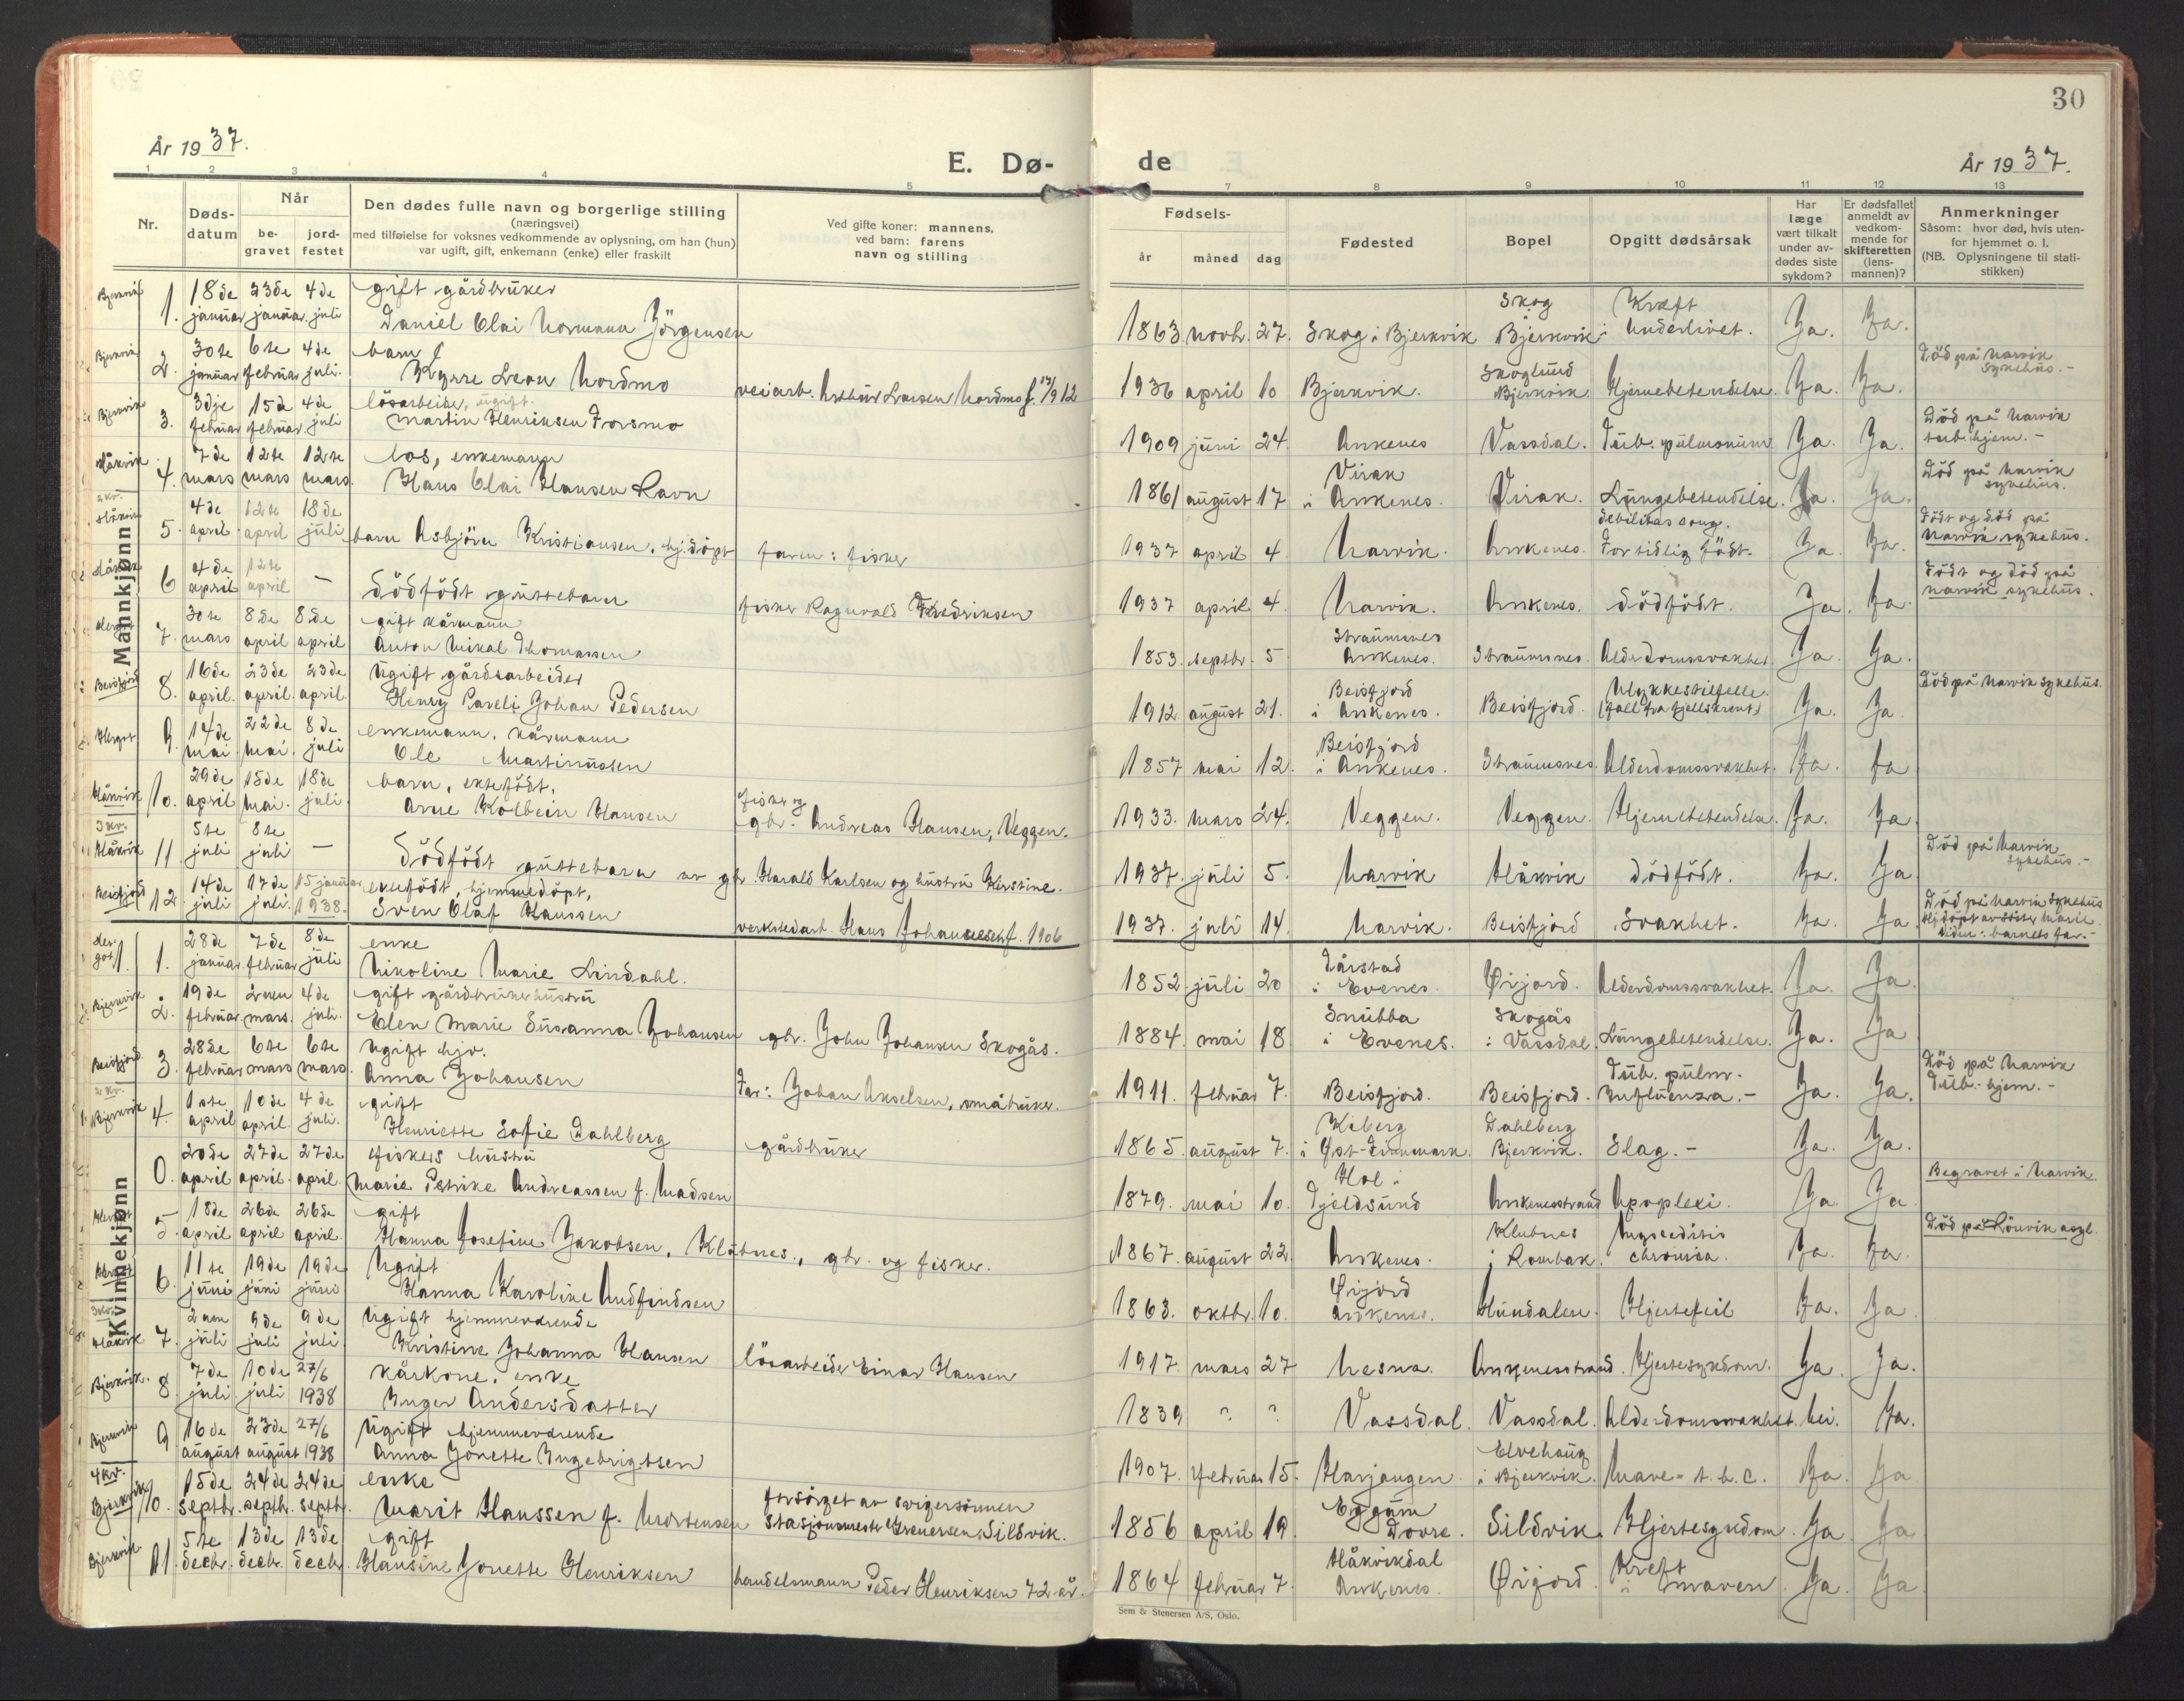 30
År 1937.
E. Dø-
de
År 1937.
1 2 3 4 5 7 8 9 10 11 12 13
Nr.
Døds-
datum
Når
be-
gravet
jord-
festet
Den dødes fulle navn og borgerlige stilling
(næringsvei)
med tilføielse for voksnes vedkommende av oplysning, om han (hun)
var ugift, gift, enkemann (enke) eller fraskilt
Ved gifte koner: mannens,
ved barn: farens
navn og stilling
Fødsels-
år måned dag
Fødested
Bopel
Opgitt dødsårsak
Har
læge
vært tilkalt
under av-
dødes siste
sykdom?
Er dødsfallet
anmeldt av
vedkom-
mende for
skifteretten
(lens-
mannen)?
Anmerkninger
Såsom: hvor død, hvis uten-
for hjemmet o. l.
(NB. Oplysningene til stati-
stikken)
Mannkjønn
Bjerkvik 1. 18de januar 23de januar 4de juli
gift gårdbruker
Daniel Olai Normann Jörgensen
1863 novbr. 27. Skog i Bjerkvik
Skog
Bjerkvik
Kræft i
Underlivet. Ja. Ja.
Bjerkvik 2. 30te januar 6te februar 4de juli.
barn
Kyrre Leon Nordmo veiarb. Arthur Larsen Nordmo f. 1912
1936 april 10 Bjerkvik.
Skoglund
Bjerkvik. Hjernebetendelse. Ja. Ja.
Död på Narvik
sykehus.-
Bjerkvik 3. 3dje februar 15de februar 4de juli
lösarbeider, ugift.
Martin Henriksen Forsmo
1909 juni 24. Ankenes Vassdal. Tub. pulmonum Ja. Ja.
Död på Narvik
tub.hjem.-
Håkvik 4. 7de mars 12te mars 12te mars.
los, enkemann
Hans Olai Hansen Ravn
1861 august 17
Virak
i Ankenes. Virak. Lungebetendelse. Ja. Ja.
Död på Narvik
sykehus.
2 kv.
Håkvik 5. 4de april 12te april 18de juli
barn Asbjörn Kristiansen, hj.döpt faren: fisker
1937 april 4. Narvik. Ankenes.
debilitas cong.
For tidlig födt. Ja. Ja.
Födt og död på
Narvik sykehus.
Håkvik 6 4de april 12te april —
Dödfödt guttebarn fisker Ragnvald Fredriksen
1937 april 4. Narvik. Ankenes. Dödfödt. Ja. Ja.
Födt og död på
Narvik sykehus.
Herjot 7. 30te mars 8de april 8de april
gift kårmann
Anton Mikal Thomassen
1853. septbr. 5
Straumsnes
Ankenes. Straumsnes. Alderdomssvakhet Ja Ja.
Beisfjord 8. 16de april. 23de april. 23de april.
Ugift gårdsarbeider
Henry Pareli Johan Pedersen
1912 august 21.
Beisfjord
i Ankenes. Beisfjord.
Ulykkestilfelle.
(fall fra fjellskrent) Ja. Ja.
Död på Narvik sykehus.
Herjot 9. 14de mai 22de mai 8de juli
enkemann, kårmann
Ole Martinussen
1857 mai 12.
Beisfjord
i Ankenes. Straumsnes. Alderdomssvakhet. Ja. Ja
Håkvik 10. 29de april 15de mai. 18de juli.
barn, ektefödt,
Arne Kolbein Hansen
fisker og
gbr. Andreas Hansen, Veggen.
1933. mars 24. Veggen. Veggen. Hjernebetendelse. Ja. Ja.
3 kv.
Håkvik 11. 5te juli 8te juli —
Dödfödt guttebarn av gbr. Harald Karlsen og hustru Kirstine.
1937. juli 5. Narvik Håkvik Dödfödt. Ja. Ja
Död på Narvik
sykehus.-
Beisfjord 12 14de juli 17de juli. 15 januar 1938.
hjemmedöpt,
Sven Olaf Hanssen verkstedarb. Hans Johannesen f. 1906
1937. juli 14. Narvik. Beisfjord Svakhet. Ja. Ja
Död på Narvik sykehus
Kvinnekjønn
Herjot 1. 28de januar 7de februar 8de juli
enke
Nikoline Marie Lindahl.
1852. juli 20
Dårstad
i Evenes. Ørjord. Alderdomssvakhet. Ja. Ja.
Bjerkvik 2. 19de februar. 2nen mars. 4de juli.
gift gårdbrukerhustru
Elen Marie Susanna Johansen gbr. John Johansen Skogås.
1884. mai 18
Snubba
i Evenes.
Skogås
i Vassdal Lungebetendelse. Ja. Ja
Beisfjord. 3. 28de februar 6te mars 6te mars.
Ugift hjv.
Anna Johansen Far: Johan Akselsen, småbruker.
1911. februar 7. Beisfjord. Beisfjord.
Tub. pulm.
Influenza.- Ja. Ja.
Död på Narvik
Tub.-hjem.-
2 kv.
Bjerkvik 4. 1ste april 10de april. 4de juli.
gift
Henriette Sofie Dahlberg gårdbruker
1865. august 7.
Kiberg
i Øst-Finnmark.
Dahlberg
Bjerkvik. Slag.- Ja. Ja.
0. 20de april 27de april. 27de april.
fiskers hustru
Marie Petrike Andreassen f. Madsen
1879. mai 10.
Hol i
Tjeldsund Ankenesstrand Apopleksi. Ja Ja.
Begravet i Narvik.
Herjot 5. 18de april 26de april 26de april.
gift
Hanna Josefine Jakobsen, Klubnes., gbr. og fisker.
1867. august 22. Ankenes.
Klubnes
i Rombak.
Myocarditis
chronica. Ja. Ja.
Död på Rönvik asyl.
Herjot 6. 11te juni 19de juni 19de juni
Ugift
Hanna Karoline Andfindsen
1863. oktbr. 10.
Ørjord
Ankenes. Hundalen. Hjertefeil Ja. Ja.
3 kv.
Håkvik 7. 2nen juli 9de juli 9de juli.
Ugift hjemmeværende
Kristine Johanna Hansen lösarbeider Einar Hansen
1917. mars 27 Nesna. Ankenesstrand. Hjertesykdom. Ja. Ja.
Bjerkvik. 8. 7de juli. 10de juli 27/6 1938
kårkone, enke
Inger Andersdatter
1839 ? ? Vassdal. Vassdal. Alderdomssvakhet. Nei. Ja.
Bjerkvik 9. 16de august 23de august 27/6 1938
Ugift hjemmeværende
Anna Jonette Ingebrigtsen
1907. februar 15. Harjangen.
Elvehaug
i Bjerkvik. Mave- t.b.c. Ja. Ja
4 kv.
Bjerkvik 10. 15de septbr. 24de septbr. 24de septbr.
enke
Marit Hanssen f. Mortensen
forsörget av svigersönnen
stasjonsmester Grenersen Sildvik.
1856 april 19.
Eggum
Dovre. Sildvik. Hjertesykdom. Ja. Ja
Bjerkvik 11. 5te decbr. 13de decbr. 13de decbr.
gift
Hansine Jonette Henriksen handelsmann Peder Henriksen 72 år.
1864 februar 7.
Håkvikdal
Ankenes. Ørjord.
Kreft
i maven. Ja. Ja
Sem & Stenersen A/S, Oslo.